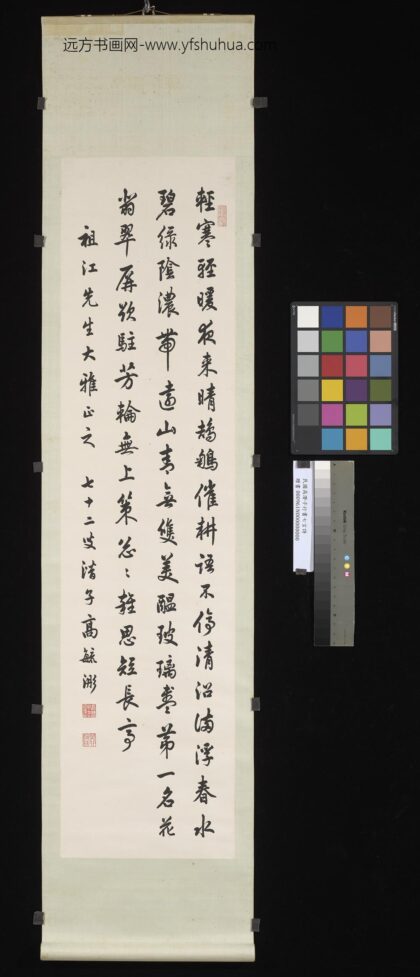 远方书画网-www.yfshuhua.com
輕寒輕暖夜來晴鵓鴣催耕語不停清沼滿浮春水
碧綠陰濃帶遠山青無雙美醞玻璃盞第一名花
翡翠屏欲駐芳輪無上策怱〻離思短長亭
祖江先生大雅正之 七十二叟潛子高毓浵
民國高潛子行書七言詩